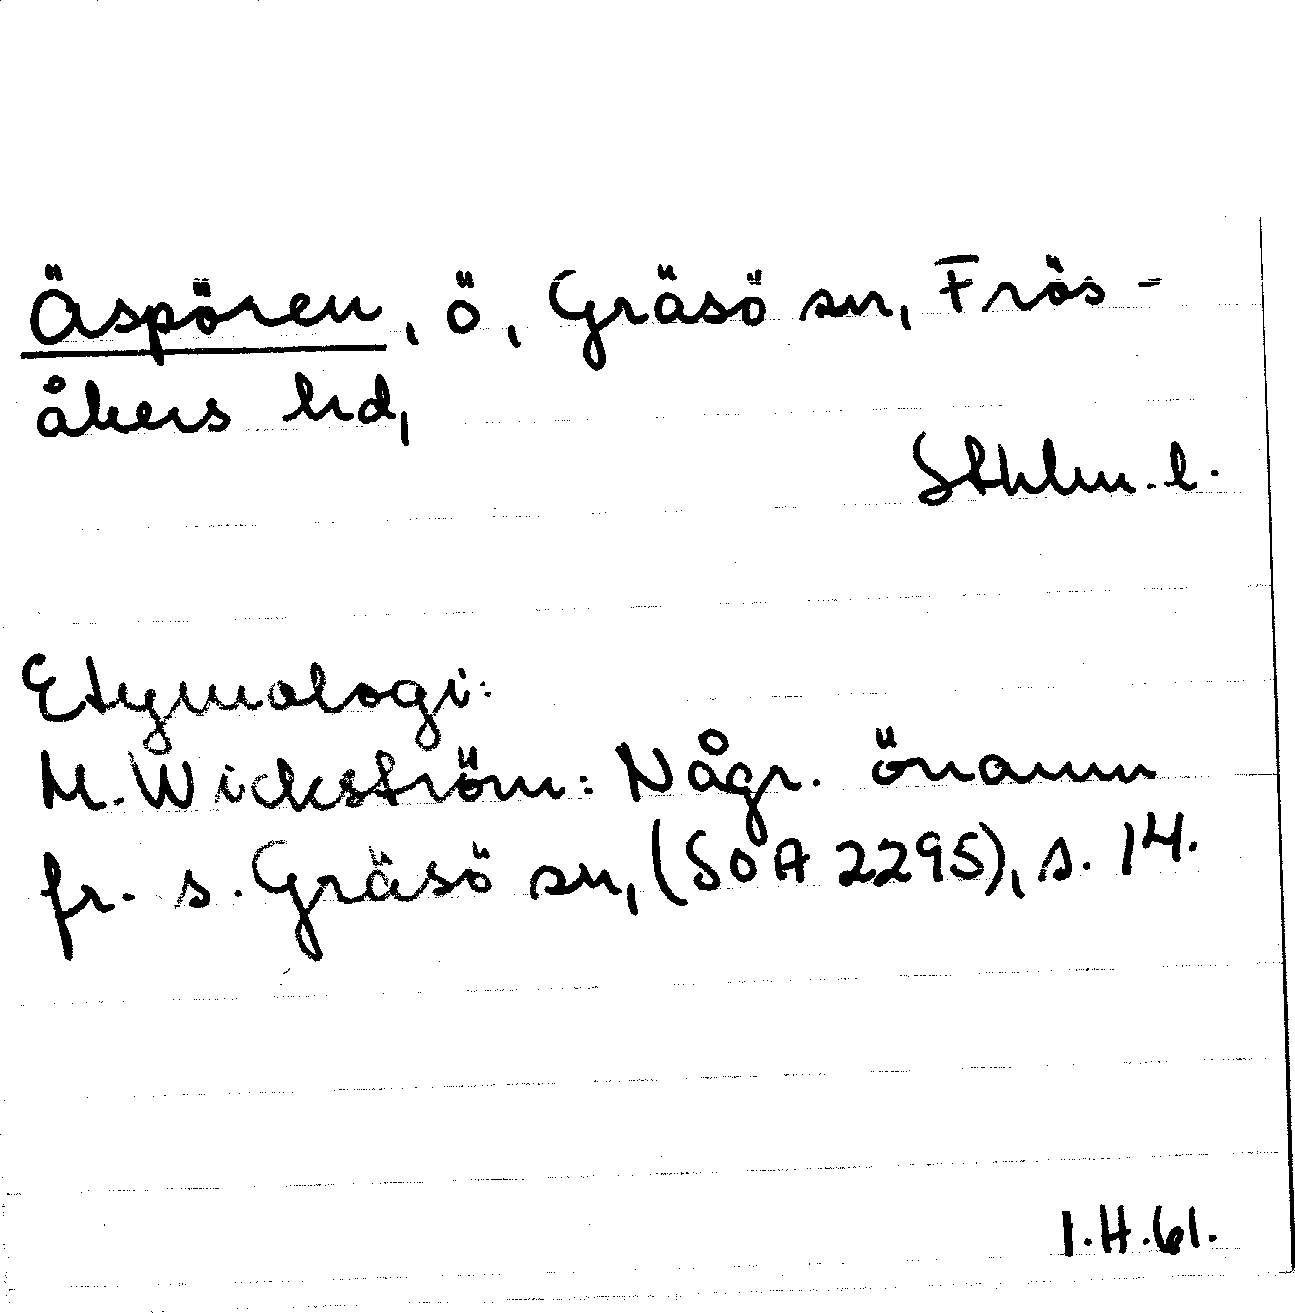 Äspören, ö, Gräsö sn, Frös-
åkers hd,
Sthlm.l.
Etymologi:
M. Wickström: Någr. önamn
fr. s. Gräsö sn, (SOA 2295), s. 14.
I.H.61.